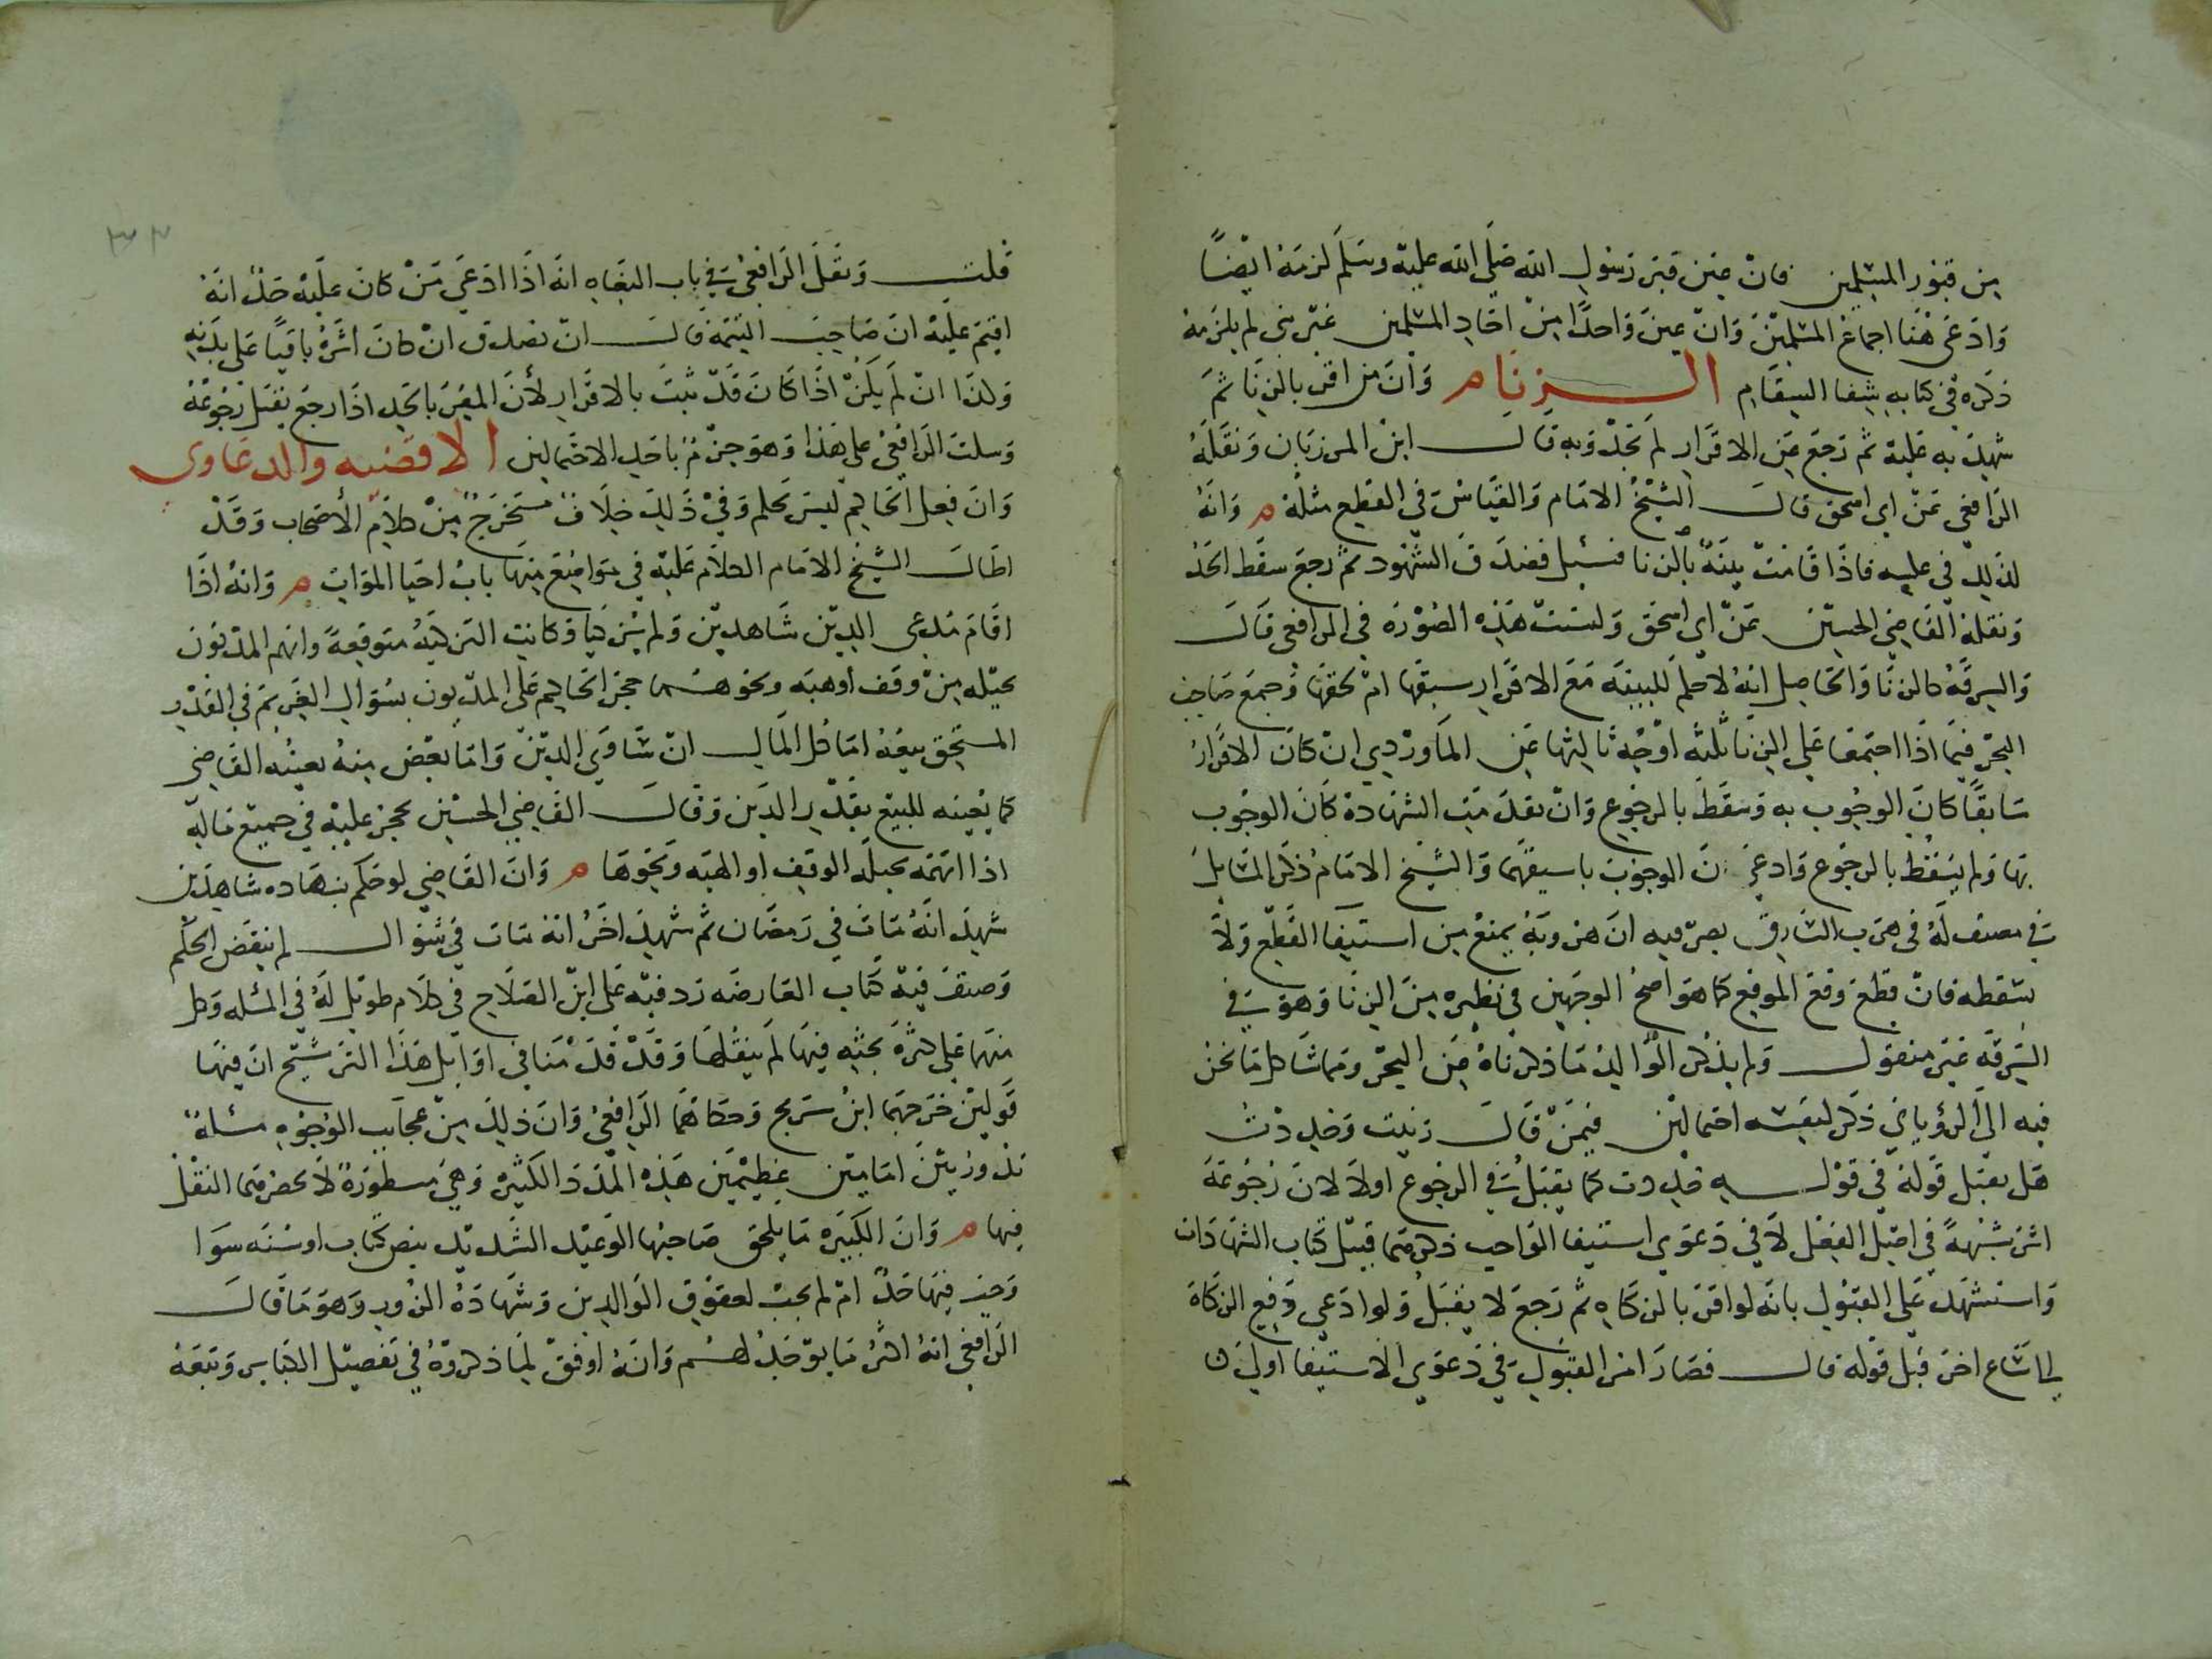 من قبور المسلمين فان عين قبر رسول الله صلى الله عليه وسلم لزمه ايضًا
وادعى هنا اجماع المسلمين وان عين واحدًا من احاد المسلمين غير نبى لم يلزمه
ذكره في كتابه شفا السقام الـزنا م وان من اقر بالزنا ثم
شهد به عليه ثم رجع عن الاقرار لم يحد وبه قال ابن المرزبان ونقله
الرافعى عن ابي اسحق قال الشيخ الامام والقياس في القطع مثله م وانه
لذلك في عليه فاذا قامت بينة بالزنا فسئل فصدق الشهود ثم رجع سقط الحد
ونقله القاضي الحسين عن ابي اسحق وليست هذه الصورة في الرافعى قال
والسرقة كالزنا والحاصل انه لا حكم للبينة مع الاقرار سبقها ام لحقها وجمع صاحب
البحر فيما اذا اجتمعا على الزنا ثلثة اوجه ثالثها عن الماوردي ان كان الاقرار
سابقًا كان الوجوب به وسقط بالرجوع وان تقدمت الشهادة كان الوجوب
بها ولم يسقط بالرجوع وادعى ان الوجوب باسبقهما والشيخ الامام ذكر المسايل
في مصنف له في هرب السارق بصر فيه ان هروبه يمنع من استيفا القطع ولا
يسقطه فان قطع وقع الموقع كما هو اصح الوجهين في نظيره من الزنا وهو في
السرقة غير منقول ولم يذكر الوالد ما ذكرناه عن البحر ومما شاكل ما نحن
فيه ان الروياني ذكر لنفسه احتمالين فيمن قال زنيت وحددت
هل يقبل قوله في قوله حددت كما يقبل في الرجوع اولا لان رجوعه
اثر شبهة في اصل الفعل لا في دعوى استيفا الواجب ذكرهما قبيل كتاب الشهادات
واستشهد على القبول بانه لو اقر بالزكاه ثم رجع لا يقبل ولو ادعى دفع الزكاة
الى ساع اخر قبل قوله قال فصار امر القبول في دعوى الاستيفا اولى
٣٣
قلت ونقل الرافعى في باب البغاه انه اذا ادعى من كان عليه حد انه
اقيم عليه ان صاحب التتمة قال ان يصدق ان كان اثره باقيًا على بدنه
ولذا ان لم يكن اذا كان قد ثبت بالاقرار لأن المقر بالحد اذا رجع يقبل رجوعه
وسكت الرافعى على هذا وهو جزم باحد الاحتمالين الاقضيه والدعاوى
وان فعل الحاكم ليس بحكم وفي ذلك خلاف مستخرج من كلام الأصحاب وقد
اطال الشيخ الامام الكلام عليه في مواضع منها باب احيا الموات م وانه اذا
اقام مدعي الدين شاهدين ولم يزكيا وكانت التزكية متوقعة واتهم المديون
بحيله من وقف أو هبه ونحوهما حجر الحاكم على المديون بسؤال الغريم في القدر
المستحق بيعه اما كل المال ان ساوى الدين واما بعض منه يعينه القاضي
كما يعينه للبيع بقدر الدين وقال القاضي الحسين يحجر عليه في جميع ماله
اذا اتهمه بحيله الوقف او الهبه ونحوها م وان القاضي لو حكم بشهاده شاهدين
شهد انه مات في رمضان ثم شهد اخر انه مات في شوال لم ينقض الحكم
وصنف فيه كتاب العارضه رد فيه على ابن الصلاح في كلام طويل له في المسله وكل
منهما على كثرة بحثه فيها لم ينقلها وقد قدمنا في اوايل هذا الترشيح ان فيها
قولين خرجهما ابن سريج وحكاهما الرافعى وان ذلك من عجايب الوجوه مسئلة
تدور بين امامين عظيمين هذه المدد الكثيره وهي مسطورة لا يحضرهما النقل
فيها م وان الكبيره ما يلحق صاحبها الوعيد الشديد بنص كتاب او سنه سوا
وجب فيها حد ام لم يجب لعقوق الوالدين وشهادة الزور وهو ما قال
الرافعى انه اكثر ما يوجد لهم وانه اوفق لما ذكروه في تفصيل الكباير وتبعه